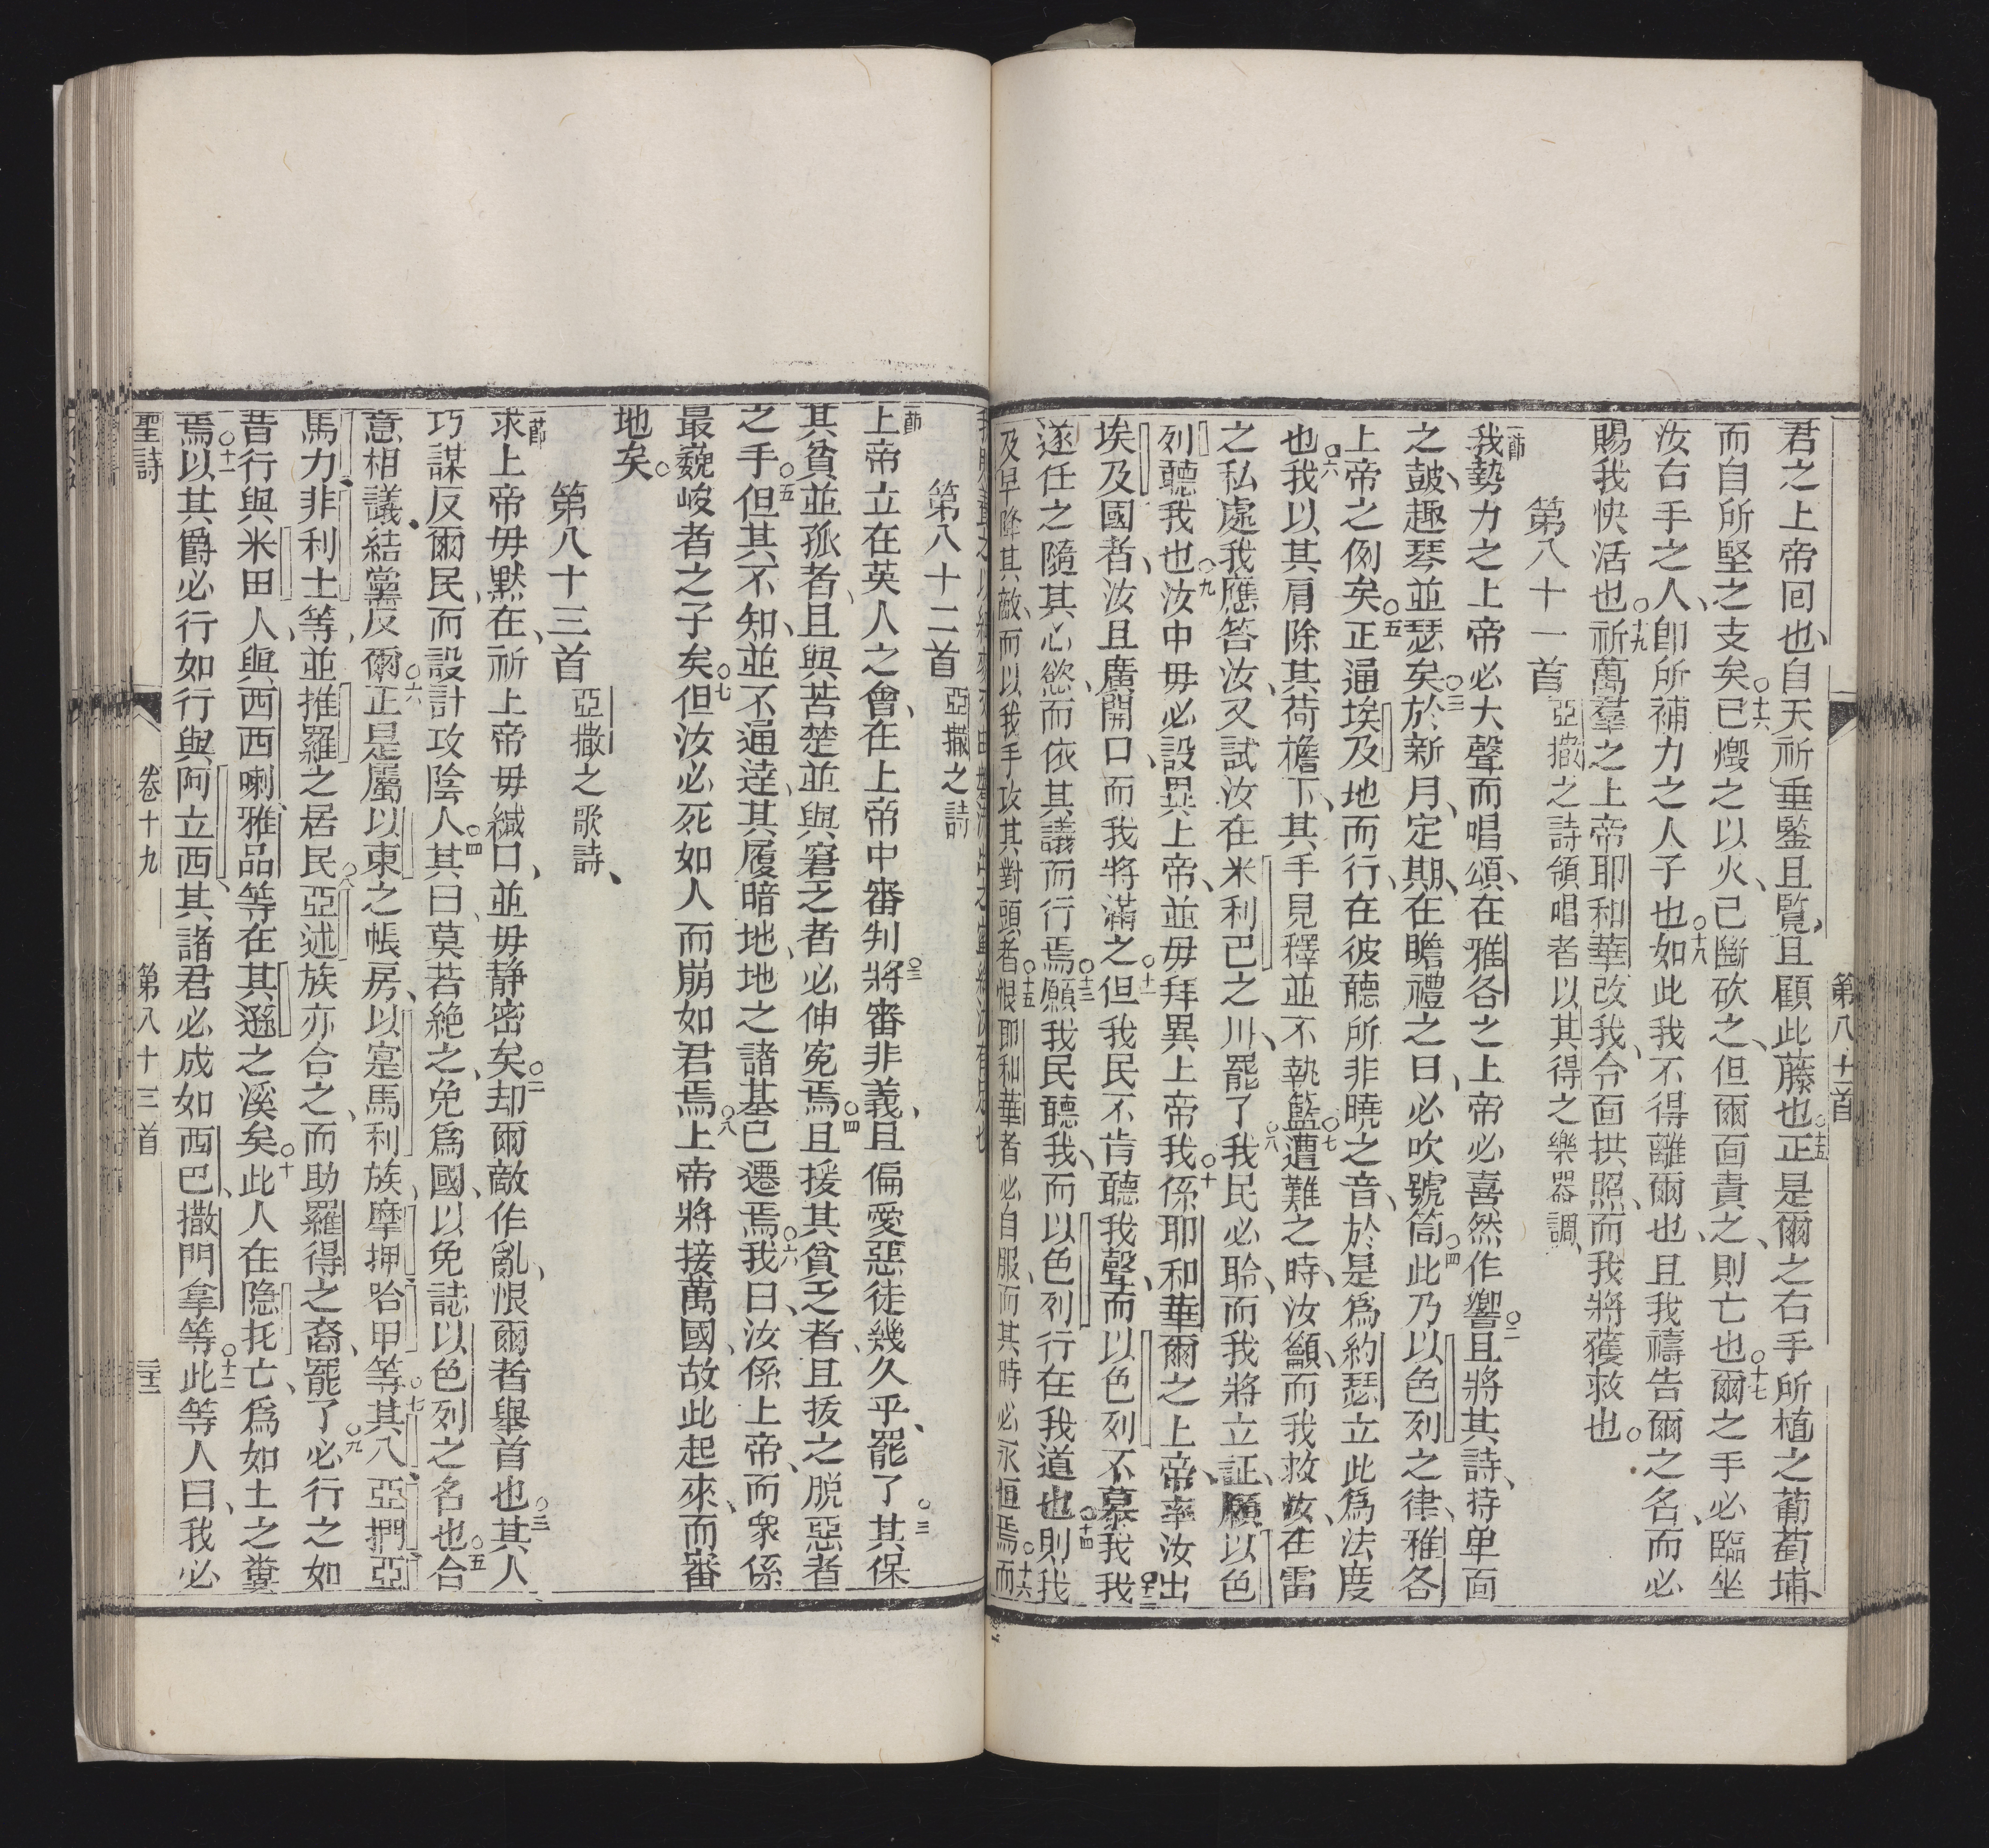 第八十一首
君之上帝回也、自天祈垂鑒且覽、且顧此藤也○十五正是爾之右手所植之葡萄埔、
而自所堅之支矣○十六已燬之以火、已斷砍之、但爾面責之、則亡也○十七爾之手必臨坐
汝右手之人、卽所補力之人子也○十八如此我不得離爾也、且我禱告爾之名、而必
賜我快活也○十九祈萬羣之上帝耶和華改我、令面拱照、而我將獲救也○
第八十一首 亞撒之詩領唱者以其得之樂器調、
一節我勢力之上帝必大聲而唱頌、在雅各之上帝必喜然作響○二且將其詩、持単面
之皷、趣琴並瑟矣○三於新月、定期、在瞻禮之日、必吹號筒○四此乃以色列之律、雅各
上帝之例矣○五正通埃及地而行、在彼聽所非曉之音、於是爲約瑟立此爲法度
也○六我以其肩除其荷擔下、其手見釋並不執籃○七遭難之時、汝籲、而我救汝、在雷
之私處我應答汝、又試汝在米利巴之川、罷了○八我民必聆、而我將立証、願以色
列聽我也○九汝中毋必設異上帝、並毋拜異上帝○十我係耶和華爾之上帝、率汝出
埃及國者、汝且廣開口、而我將滿之○十一但我民不肯聽我聲、而以色列不慕我○十二我
遂任之隨其心慾、而依其議而行焉○十三願我民聽我、而以色列行在我道也○十四則我
及早降其敵、而以我手攻其對頭者○十五恨耶和華者必自服、而其時必永恒焉○十六而
第八十二首 亞撒之詩
一節上帝立在英人之會、在上帝中審判○二將審非義、且偏愛惡徒幾久乎、罷了○三其保
其貧並孤者、且與苦楚並與窘乏者必伸寃焉○四且援其貧乏者、且拔之脱惡者
之手○五但其不知、並不通達、其履暗地、地之諸基已遷焉○六我曰、汝係上帝、而衆係
最巍峻者之子矣○七但汝必死如人、而崩如君焉○八上帝將接萬國、故此起來、而審
地矣○
第八十三首 亞撒之歌詩、
一節求上帝毋默在、祈上帝毋緘口、並毋静密矣○二却爾敵作亂、恨爾者舉首也○三其人
巧謀反爾民、而設計攻陰人○四其曰、莫若絶之、免爲國、以免誌以色列之名也○五合
意相議、結黨反爾○六正是屬以東之帳房、以寔馬利族、摩押、哈甲等○七其八亞捫、亞
馬力、非利士等、並推羅之居民○八亞述族亦合之、而助羅得之裔、罷了○九必行之如
昔行與米田人、與西西喇、雅品等在其遜之溪矣○十此人在隐托亡、爲如土之糞
焉○十一以其爵必行如行與阿立西、其諸君必成如西巴、撒門拿等○十二此等人曰、我必
聖詩 卷十九 第八十三首 三十三